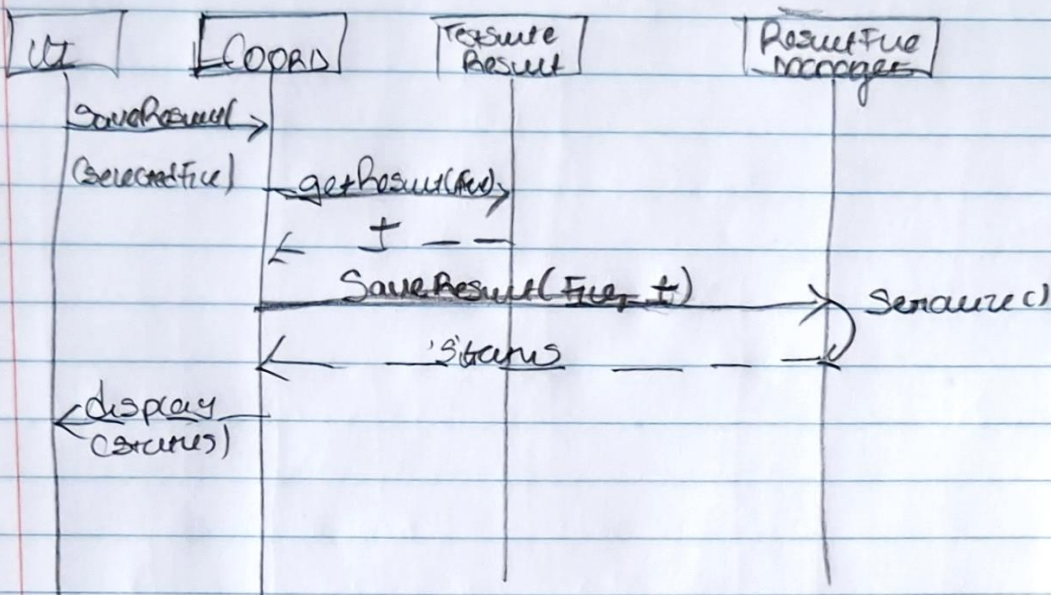 UI
COORD
Testsuite
Result
ResultFile
manager
SaveResult(
(selectedFile)
getResult(File)
t
SaveResult(File, t)
Serialize()
Status
display
(status)